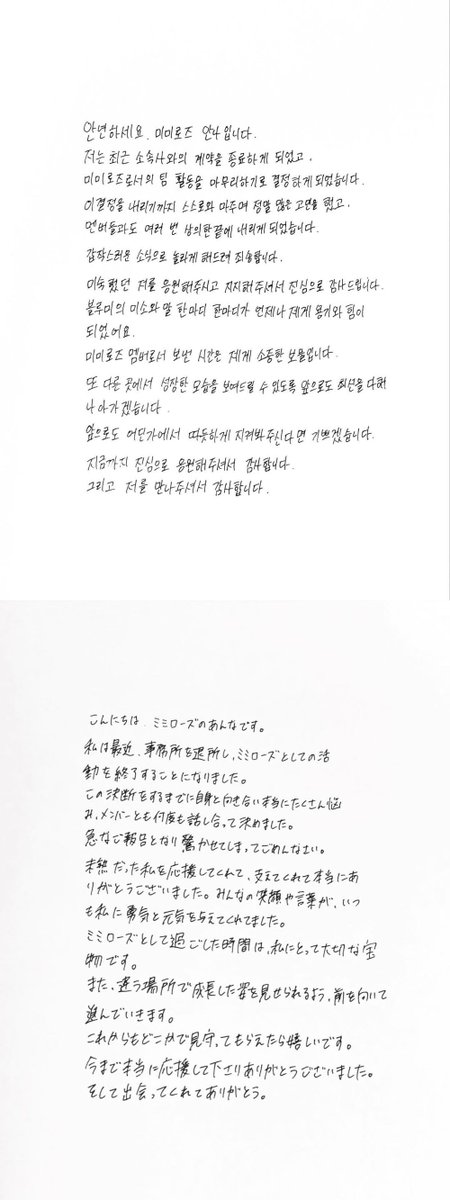 안녕하세요, 미미로즈 안나 입니다.
저는 최근 소속사와의 계약을 종료하게 되었고,
미미로즈로서의 팀 활동을 마무리하기로 결정하게 되었습니다.
이결정을 내리기까지 스스로와 마주하며 정말 많은 고민을 했고,
멤버들과도 여러 번 상의한끝에 내리게 되었습니다.
갑작스러운 소식으로 놀라게 해드려 죄송합니다.
미숙했던 저를 응원해주시고 지지해주셔서 진심으로 감사드립니다.
블루미의 미소와 말 한마디 한마디가 언제나 제게 용기와 힘이
되었어요.
미미로즈 멤버로서 보낸 시간은 제게 소중한 보물입니다.
또 다른 곳에서 성장한 모습을 보여드릴 수 있도록 앞으로도 최선을 다해
나아가겠습니다.
앞으로도 어딘가에서 따뜻하게 지켜봐 주신다면 기쁘겠습니다.
지금까지 진심으로 응원해주셔서 감사합니다.
그리고 저를 만나주셔서 감사합니다.
こんにちは、ミミローズのあんなです。
私は最近、事務所を退所し、ミミローズとしての活
動を終了することになりました。
この決断をするまでに自身と向き合い本当にたくさん悩
み、メンバーとも何度も話し合って決めました。
急なご報告となり驚かせてしまってごめんなさい。
未熟だった私を応援してくれて、支えてくれて本当にあ
りがとうございました。みんなの笑顔や言葉が、いつ
も私に勇気と元気を与えてくれてました。
ミミローズとして過ごした時間は、私にとって大切な宝
物です。
また、違う場所で成長した姿を見せられるよう、前を向いて
進んでいきます。
これからもどこかで見守ってもらえたら嬉しいです。
今まで本当に応援して下さりありがとうございました。
そして出会ってくれてありがとう。